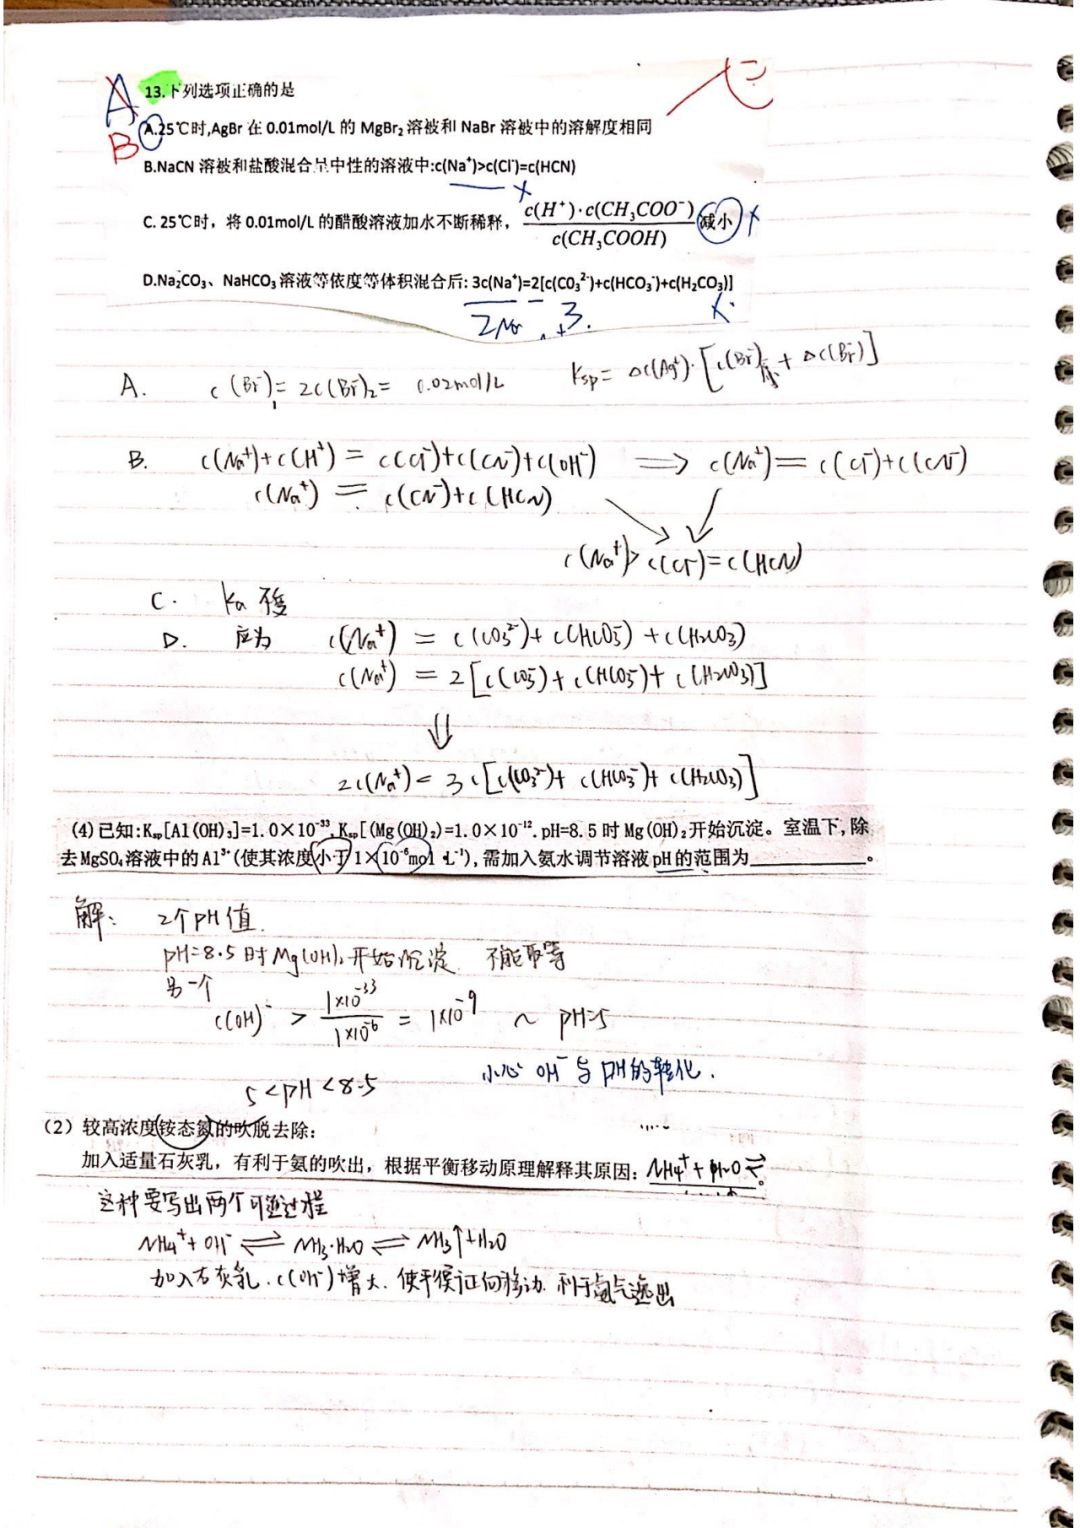 13.下列选项正确的是
A
B
A.25℃时,AgBr 在 0.01mol/L 的 MgBr₂ 溶被和 NaBr 溶被中的溶解度相同
B.NaCN 溶被和盐酸混合呈中性的溶液中:c(Na⁺)>c(Cl⁻)=c(HCN)
C. 25℃时，将 0.01mol/L 的醋酸溶液加水不断稀释， c(H⁺)·c(CH₃COO⁻)/c(CH₃COOH) 减小 ×
D.Na₂CO₃、NaHCO₃ 溶液等依度等体积混合后: 3c(Na⁺)=2[c(CO₃²⁻)+c(HCO₃⁻)+c(H₂CO₃)]
A. c(Br⁻)₁= 2c(Br⁻)₂= 0.02mol/L Ksp= Δc(Ag⁺)·[c(Br⁻)+Δc(Br⁻)]
B. c(Na⁺)+c(H⁺) = c(Cl⁻)+c(CN⁻)+c(OH⁻) ⟹ c(Na⁺)= c(Cl⁻)+c(CN⁻)
c(Na⁺) = c(CN⁻)+c(HCN)
c(Na⁺)>c(Cl⁻)=c(HCN)
C. Ka 不变
D. 应为 c(Na⁺) = c(CO₃²⁻)+c(HCO₃⁻)+c(H₂CO₃)
c(Na⁺) = 2[c(CO₃⁻)+c(HCO₃⁻)+c(H₂CO₃)]
⇓
2c(Na⁺)= 3c[c(CO₃²⁻)+c(HCO₃⁻)+c(H₂CO₃)]
(4)已知:Kₛₚ[Al(OH)₃]=1.0×10⁻³³,Kₛₚ[(Mg(OH)₂)=1.0×10⁻¹².pH=8.5 时 Mg(OH)₂开始沉淀。室温下,除
去 MgSO₄ 溶液中的 Al³⁺(使其浓度小于1×10⁻⁶mol·L⁻¹),需加入氨水调节溶液 pH 的范围为________。
解: 2个pH值.
pH=8.5时Mg(OH)₂开始沉淀 不能取等
另一个
c(OH)⁻ > 1×10⁻³³/1×10⁻⁶ = 1×10⁻⁹ ~ pH=5
小心 OH⁻与pH的转化.
5<pH<8.5
(2) 较高浓度铵态氮的吹脱去除:
加入适量石灰乳，有利于氨的吹出，根据平衡移动原理解释其原因: NH₄⁺+H₂O⇌。
这种要写出两个可逆过程
NH₄⁺+OH⁻⇌NH₃·H₂O⇌NH₃↑+H₂O
加入石灰乳.c(OH⁻)增大.使平衡正向移动.利于氨气逸出